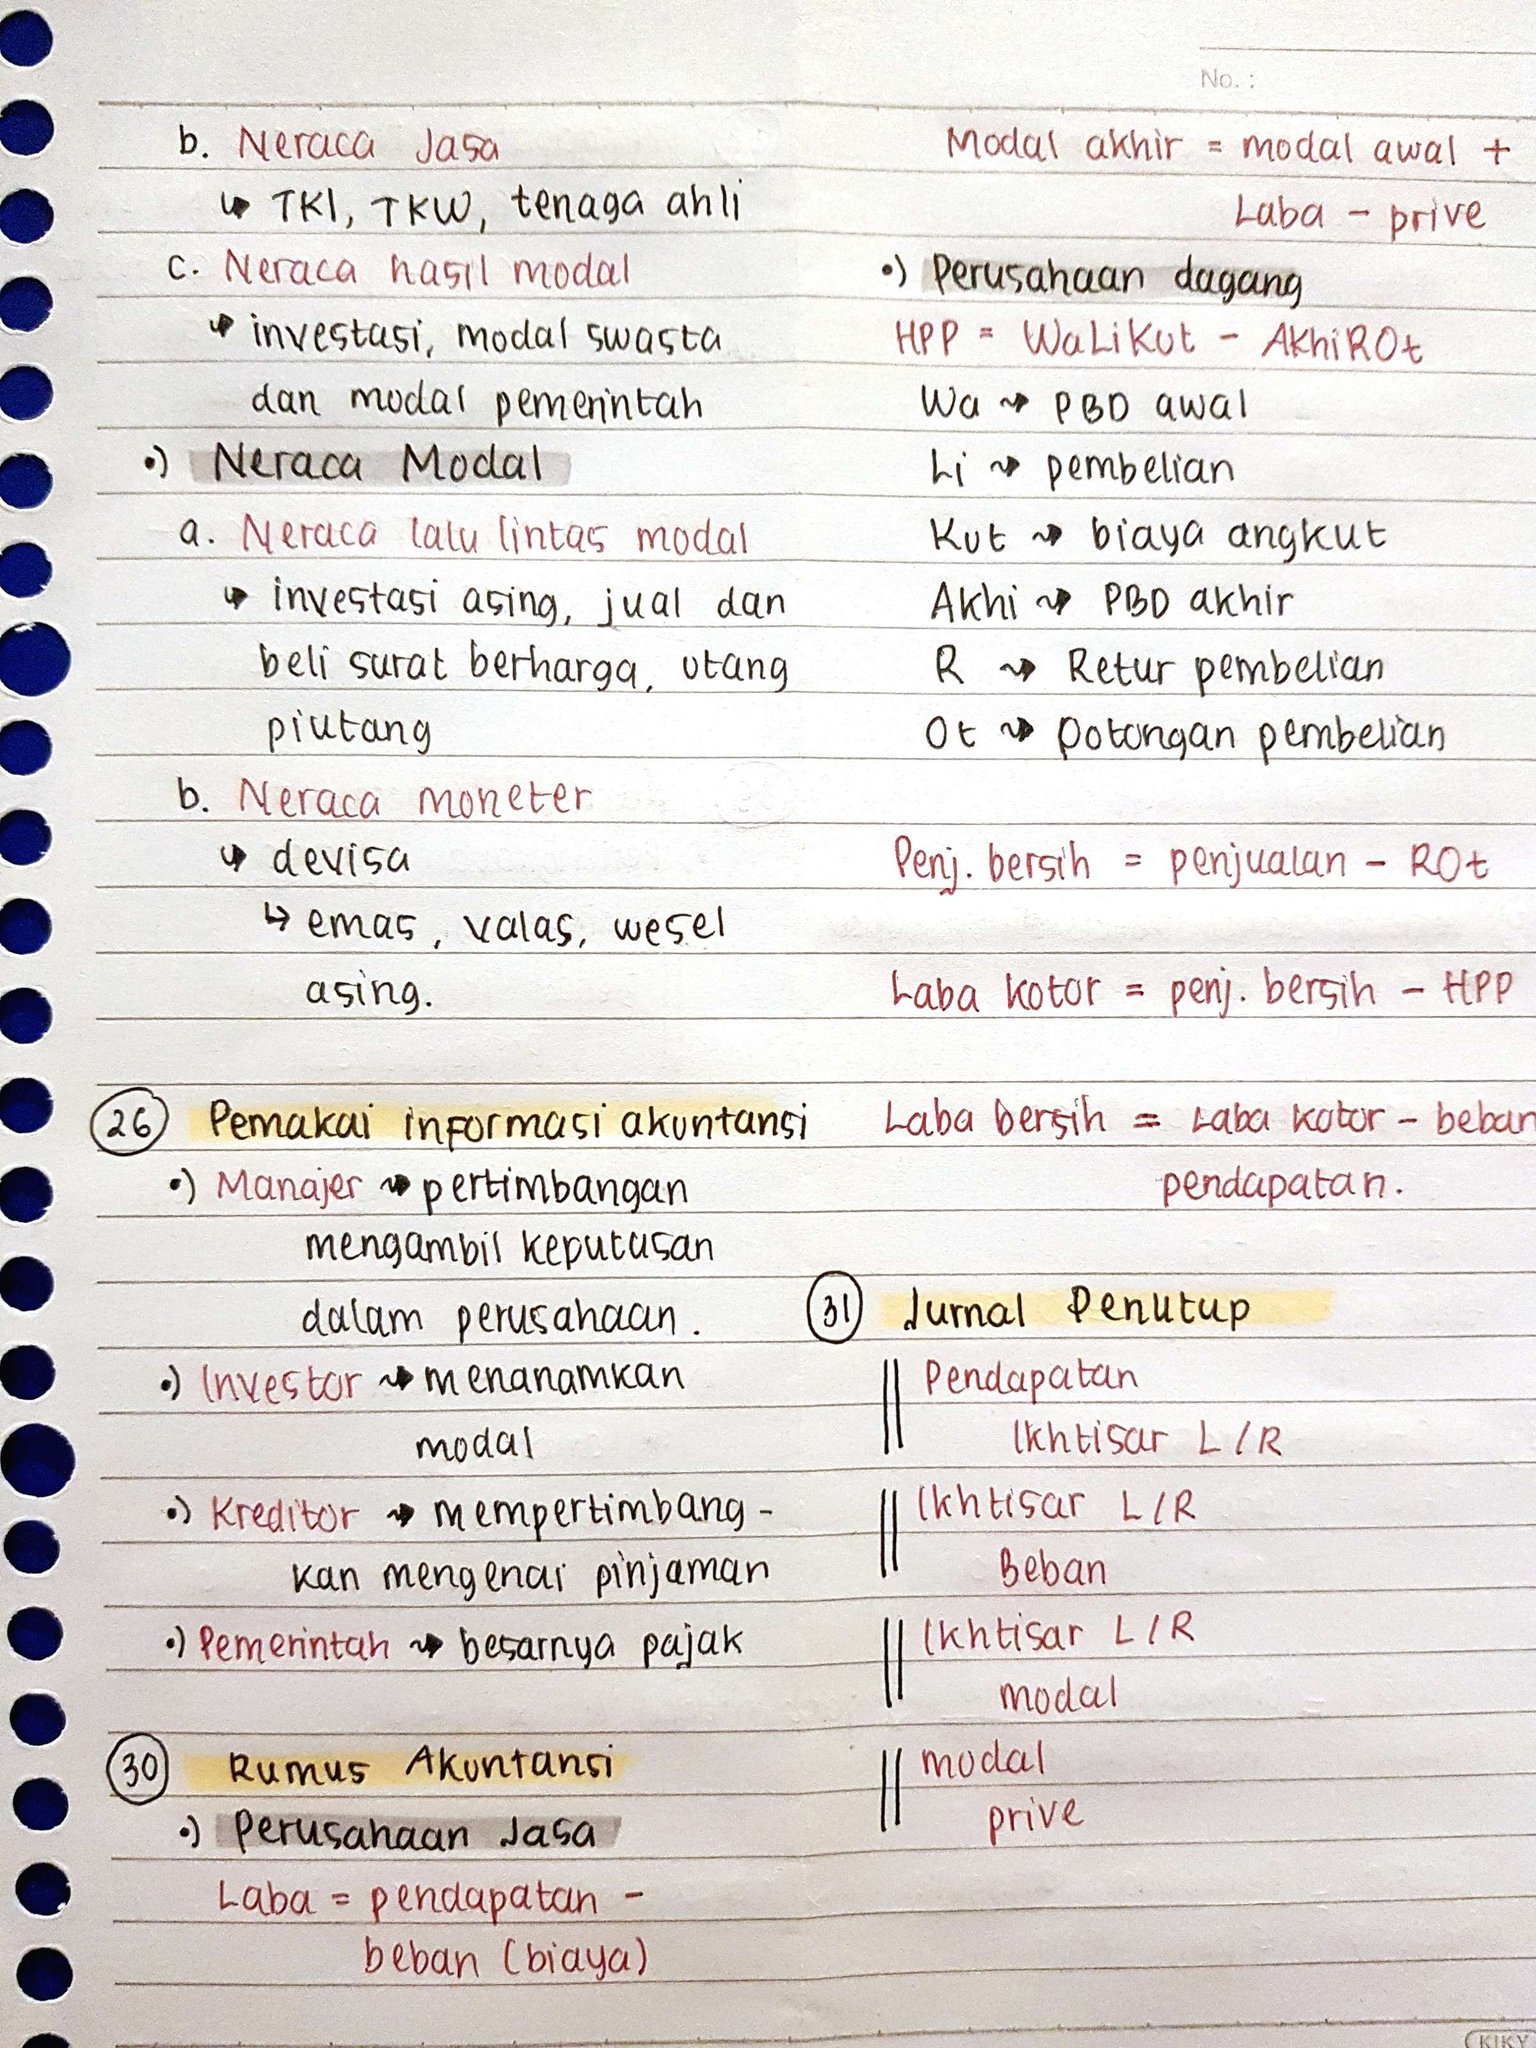 No. :
b. Neraca Jasa
↳ TKI, TKW, tenaga ahli
c. Neraca hasil modal
↳ investasi, modal swasta
dan modal pemerintah
•) Neraca Modal
a. Neraca lalu lintas modal
↳ investasi asing, jual dan
beli surat berharga, utang
piutang
b. Neraca moneter
↳ devisa
↳ emas, valas, wesel
asing.
26 Pemakai informasi akuntansi
•) Manajer → pertimbangan
mengambil keputusan
dalam perusahaan.
•) Investor → menanamkan
modal
•) Kreditor → mempertimbang -
kan mengenai pinjaman
•) Pemerintah → besarnya pajak
30 Rumus Akuntansi
•) Perusahaan Jasa
Laba = pendapatan -
beban (biaya)
Modal akhir = modal awal +
Laba - prive
•) Perusahaan dagang
HPP = WaLiKut - AkhiROt
Wa → PBD awal
Li → pembelian
Kut → biaya angkut
Akhi → PBD akhir
R → Retur pembelian
Ot → potongan pembelian
Penj. bersih = penjualan - ROt
Laba kotor = penj. bersih - HPP
Laba bersih = Laba kotor - beban
pendapatan.
31 Jurnal Penutup
Pendapatan
Ikhtisar L/R
Ikhtisar L/R
Beban
Ikhtisar L/R
modal
modal
prive
KIKY